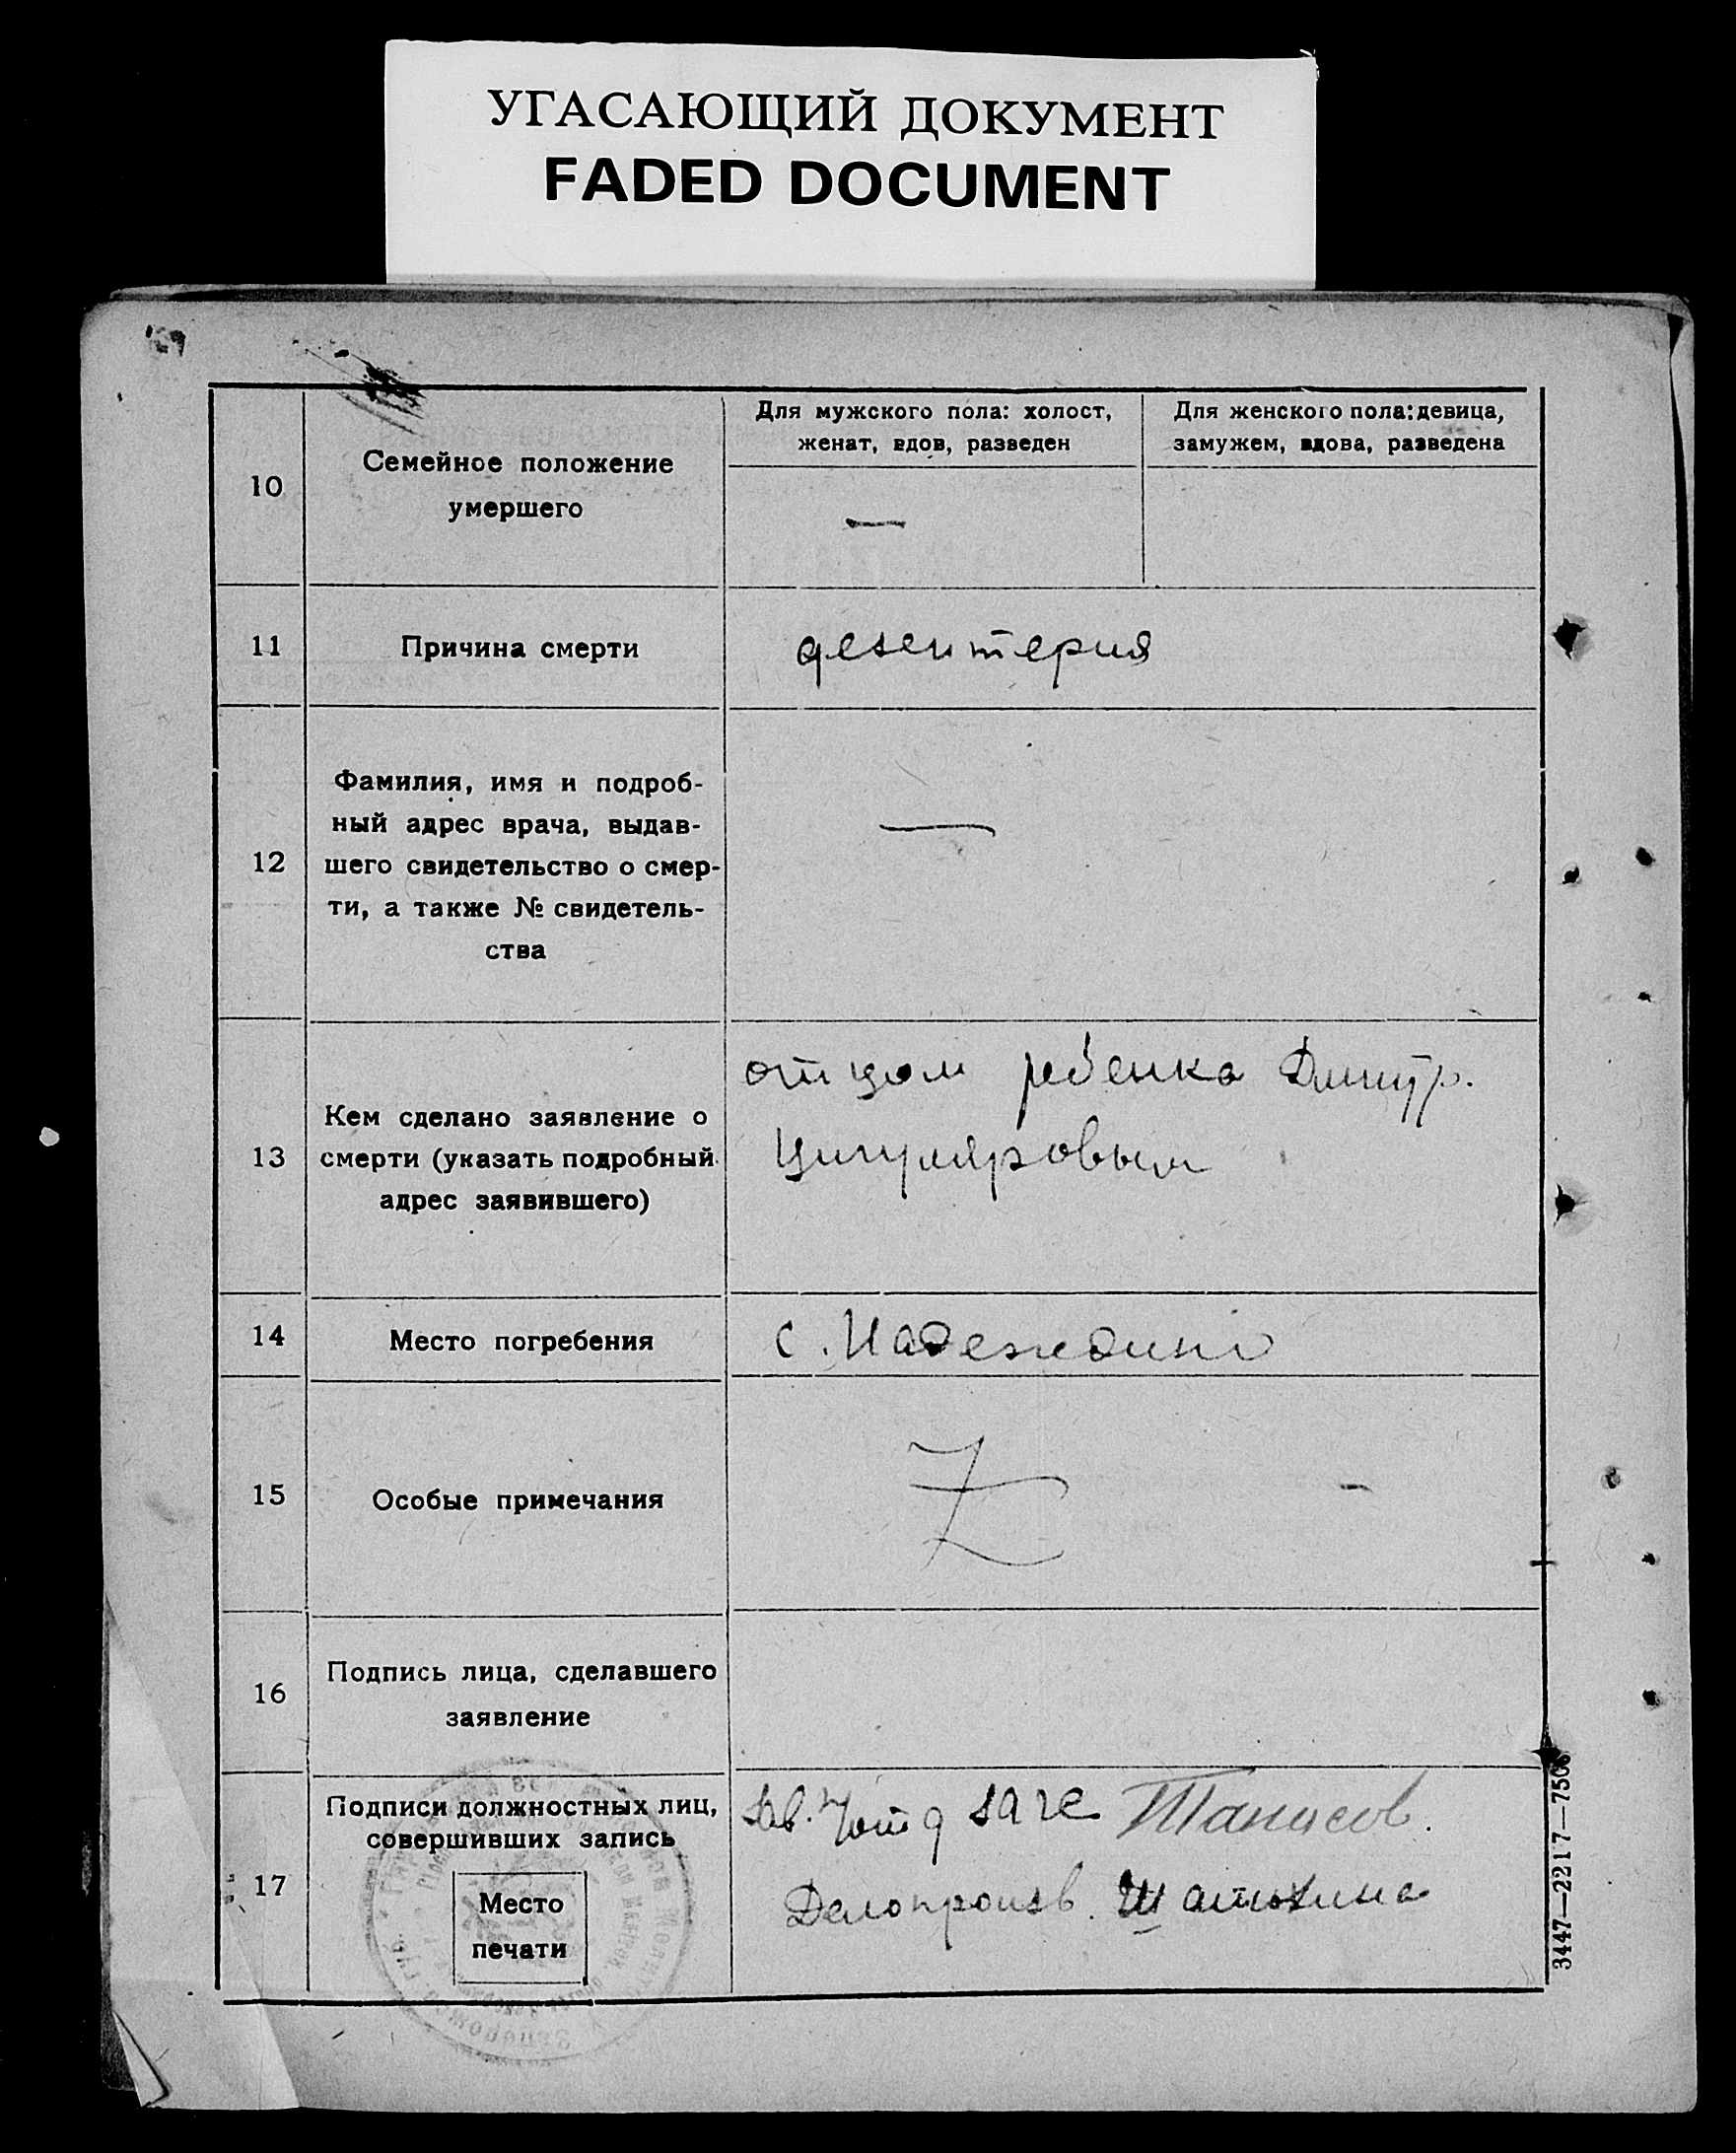 УГАСАЮЩИЙ ДОКУМЕНТ
FADED DOCUMENT
10
Семейное положение
умершего
Для мужского пола: холост,
женат, вдов, разведен
Для женского пола: девица,
замужем, вдова, разведена
—
11
Причина смерти
дезентерия
12
Фамилия, имя и подроб-
ный адрес врача, выдав-
шего свидетельство о смер-
ти, а также № свидетель-
ства
—
13
Кем сделано заявление о
смерти (указать подробный
адрес заявившего)
отцом ребенка Дмитр.
Цигуляровым
14
Место погребения
с. Надеждино
15
Особые примечания
Z
16
Подпись лица, сделавшего
заявление
17
Подписи должностных лиц,
совершивших запись
Место
печати
Зав. загс Танасов.
Делопроизв.
3447—2217—750